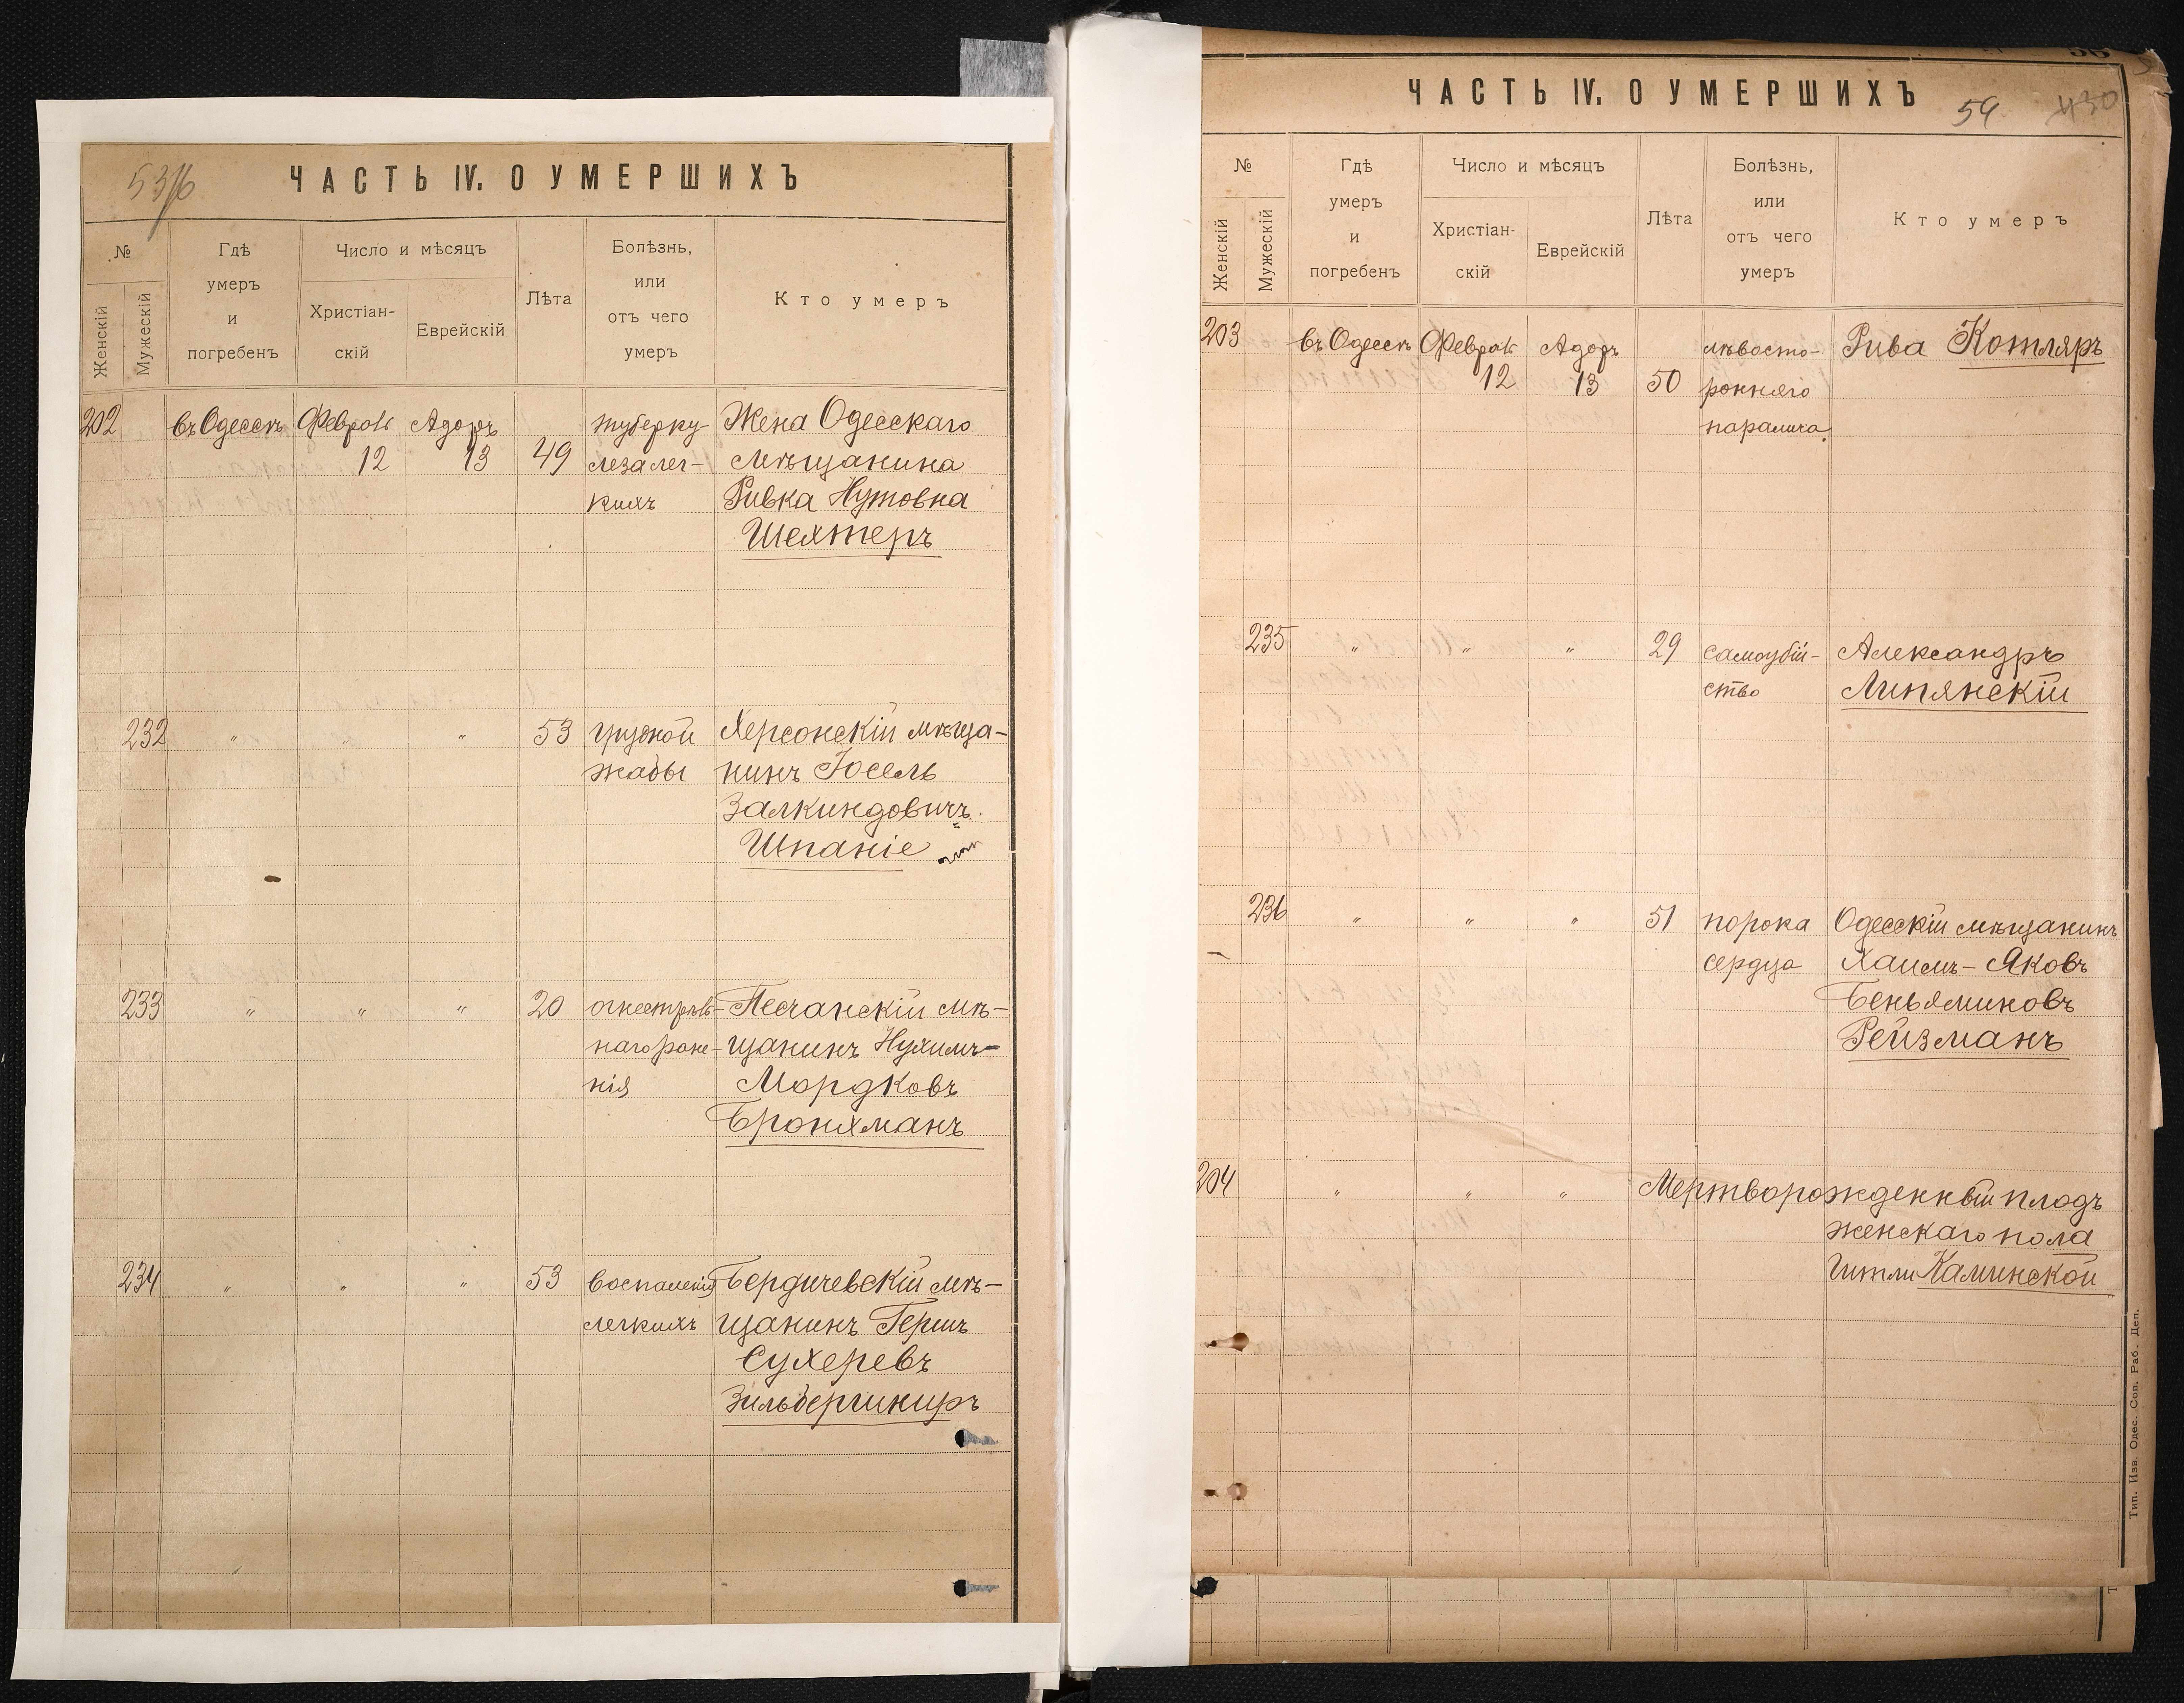 ЧАСТЬ IV. О УМЕРШИХЪ
№
Женскій
Мужескій
Гдѣ
умеръ
и
погребенъ
Число и мѣсяцъ
Христіан-
скій
Еврейскій
Лѣта
Болѣзнь,
или
отъ чего
умеръ
Кто умеръ
202 въ Одессѣ Адоръ туберку- Жена Одесскаго
12 13 49 леза лег- мѣщанина
кихъ Ривка Нутовна
Шехтеръ
232 " " " 53 грудной Херсонскій мѣща-
жабы нинъ Іосель
Залкиндовичъ
Шпаніе
233 " " " 20 огнестрѣль- Песчанскій мѣ-
наго ране- щанинъ Нухимъ-
нія Мордковъ
Бронхманъ
234 " " " 53 воспаленія Бердичевскій мѣ-
легкихъ щанинъ Гершъ
Сухеревъ
Зильбершкиръ
ЧАСТЬ IV. О УМЕРШИХЪ
54 430
№
Женскій
Мужескій
Гдѣ
умеръ
и
погребенъ
Число и мѣсяцъ
Христіан-
скій
Еврейскій
Лѣта
Болѣзнь,
или
отъ чего
умеръ
Кто умеръ
203 въ Одессѣ Адоръ лѣвосто- Рива Котляръ
12 13 50 ронняго
паралича
235 " " " 29 самоубій- Александръ
ство Липянскій
236 " " " 51 порока Одесскій мѣщанинъ
сердца Хаимъ-Яковъ
Беньяминовъ
Рейзманъ
204 " " " Мертворожденный плодъ
женскаго пола
Гитли Каминской
Тип. Изв. Одес. Сов. Раб. Деп.